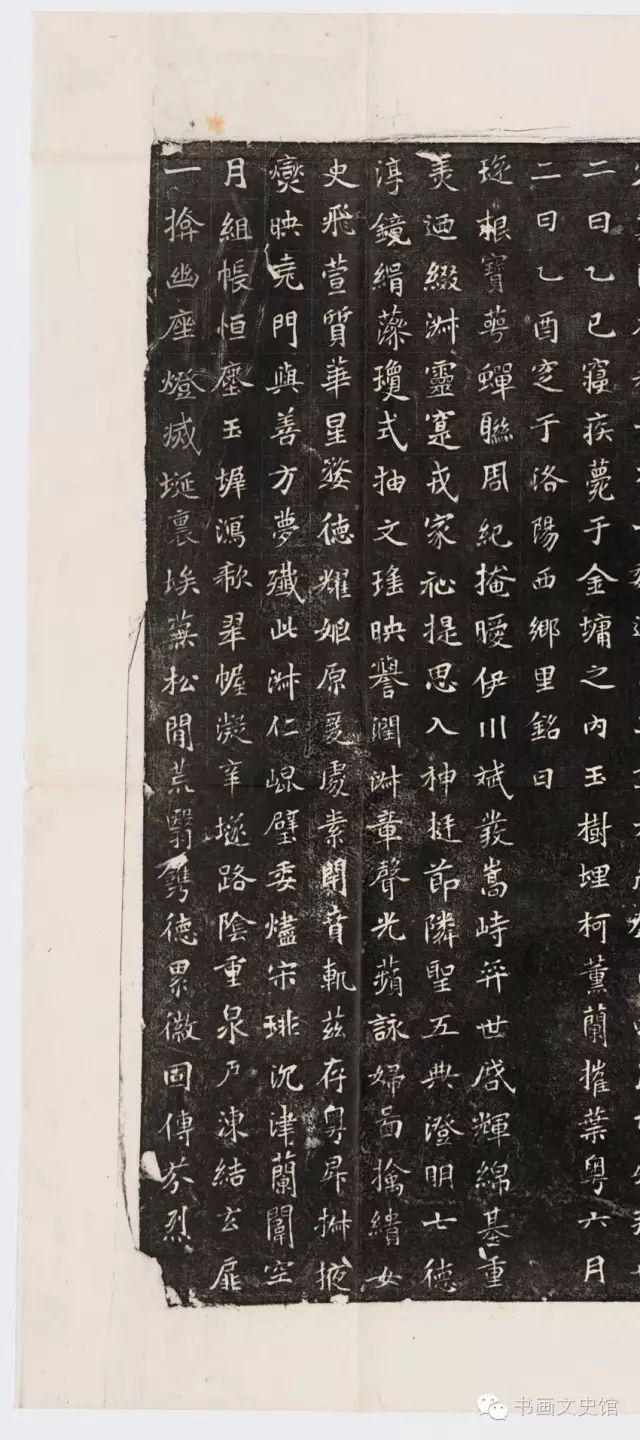 二日乙巳寢疾薨于金墉之內玉樹埋柯薰蘭摧葉粵六月
二日乙酉窆于洛陽西鄉里銘曰
瓊根寶萼蟬聯周紀掩曖伊川斌叢嵩峙弈世啓輝綿基重
美迺綴淋靈寔戎家祉提思入神挺節隣聖五典澄明七德
渟鏡絹藻瓊式抽文瑤映譽潤淋章聲光蘋詠婦啚摛繢女
史飛萱質華星婺德耀姬原爰處素閈賁軌茲存粵昇掖
爕映堯門與善方夢殲此淋仁崐璧委燼宋琲沉津蘭闈空
月組帳恒塵玉墀瀉歘翠幄凝辛燧路陰重泉乃凍結玄扉
一揜幽座燈滅埏裏埃蕪松閒荒翳鐫德累徽固傳芬烈
书画文史馆